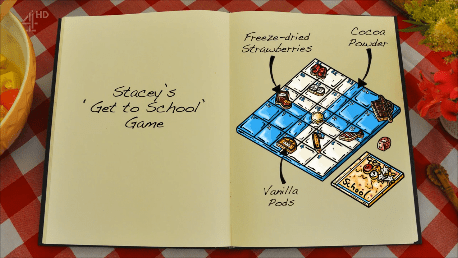 4HD
Stacey's
'Get to School'
Game
Freeze-dried
Strawberries
Cocoa
Powder
Vanilla
Pods
School